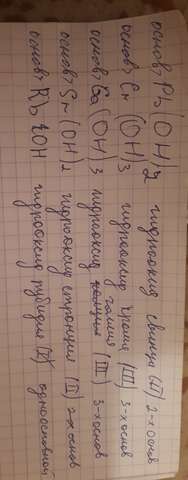 основ? Pb(OH)2 гидрооксид свинца (II) 2-х основ
основ? Cr(OH)3 гидрооксид хрома (III) 3-х основ
основ? Ga(OH)3 гидрооксид галия (III) 3-х основ
основ? Sr(OH)2 гидрооксид стронция (II) 2-х основ
основ? RbOH гидрооксид рубидия (I) одноосновной